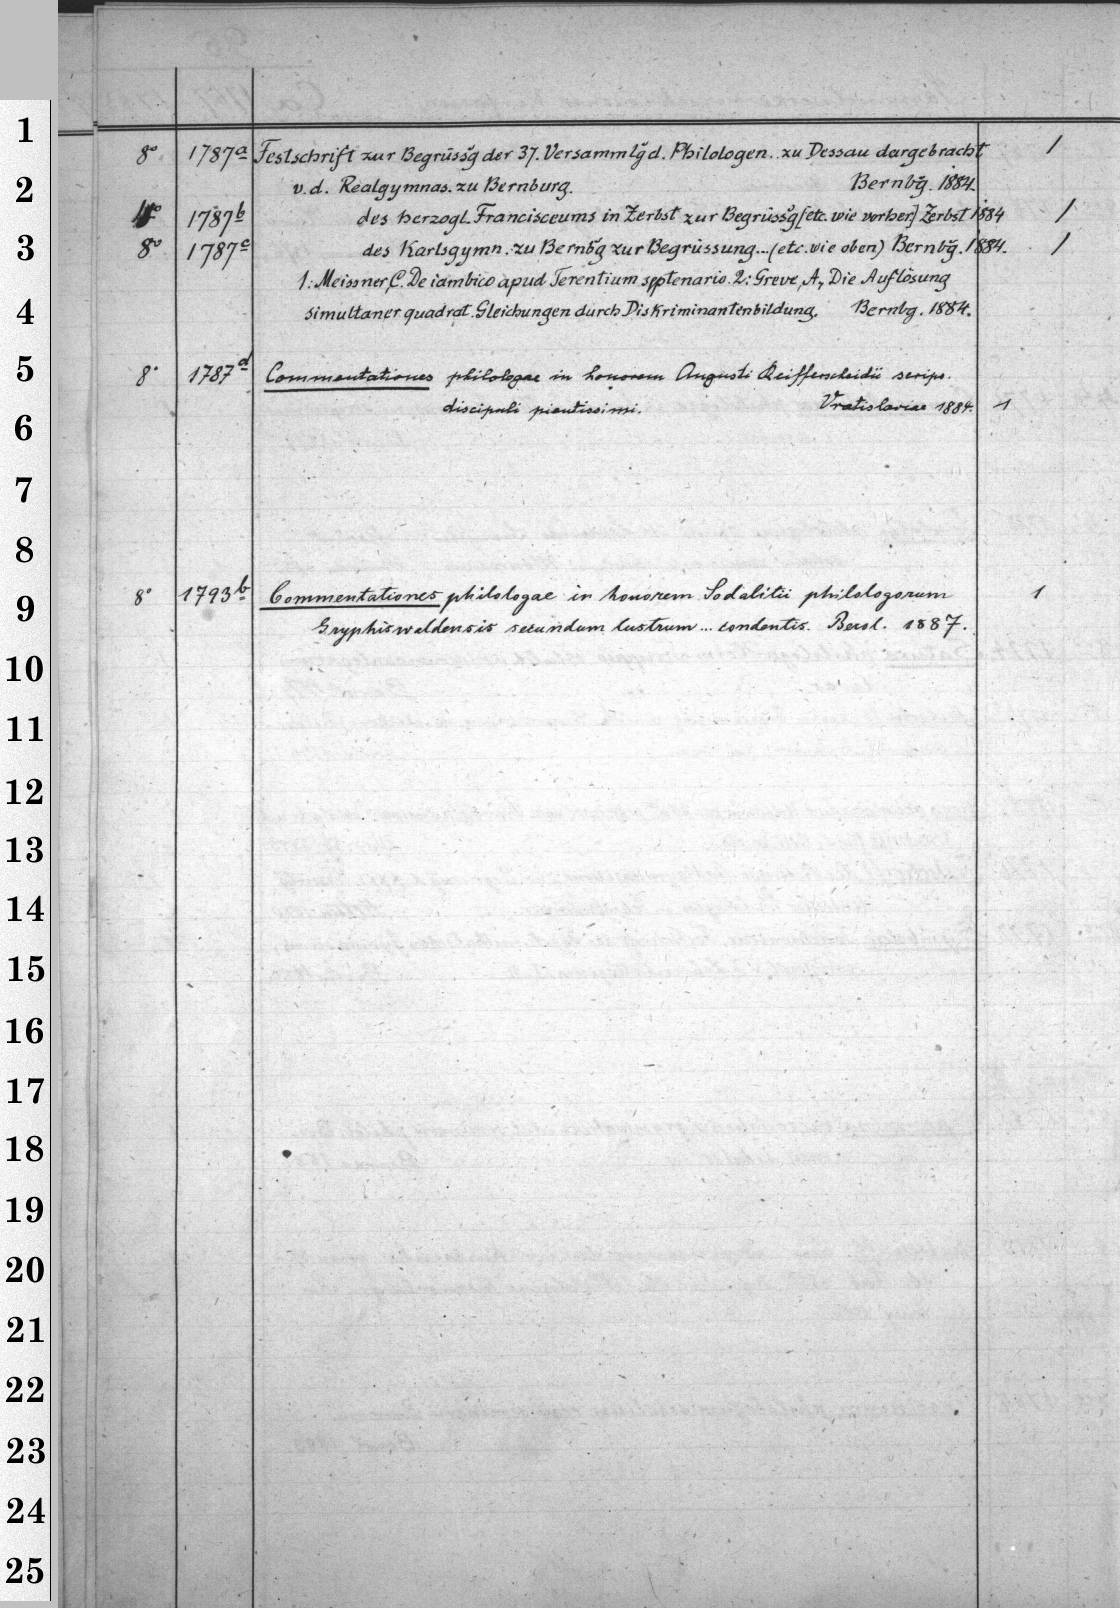 1
8° 1787a Festschrift zur Begrüssg der 37. Versammlg d. Philologen. zu Dessau dargebracht 1
2
v. d. Realgymnas. zu Bernburg. Bernbg. 1884.
4° 1787b des herzogl. Francisceums in Zerbst zur Begrüssg [etc. wie vorher] Zerbst 1884 1
3
8° 1787c des Karlsgymn. zu Bernbg zur Begrüssung... (etc. wie oben) Bernbg. 1884. 1
1: Meissner, C. De iambico apud Terentium septenario. 2: Greve, A., Die Auflösung
4
simultaner quadrat. Gleichungen durch Diskriminantenbildung. Bernbg. 1884.
5
8° 1787d Commentationes philologae in honorem Augusti Reifferscheidii scrips.
discipuli pientissimi. Vratislaviae 1884. 1
6
7
8
8° 1793b Commentationes philologae in honorem Sodalitii philologorum 1
9
Gryphiswaldensis secundum lustrum ... condentis. Berol. 1887.
10
11
12
13
14
15
16
17
18
19
20
21
22
23
24
25